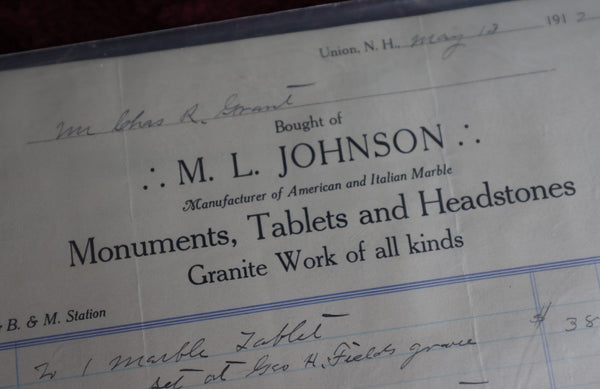 Union, N. H., May 18 1912
Mr Chas R. Grant
Bought of
∴ M. L. JOHNSON ∴
Manufacturer of American and Italian Marble
Monuments, Tablets and Headstones
Granite Work of all kinds
B. & M. Station
To 1 marble Tablet $ 38
set at Geo H. Fields grave